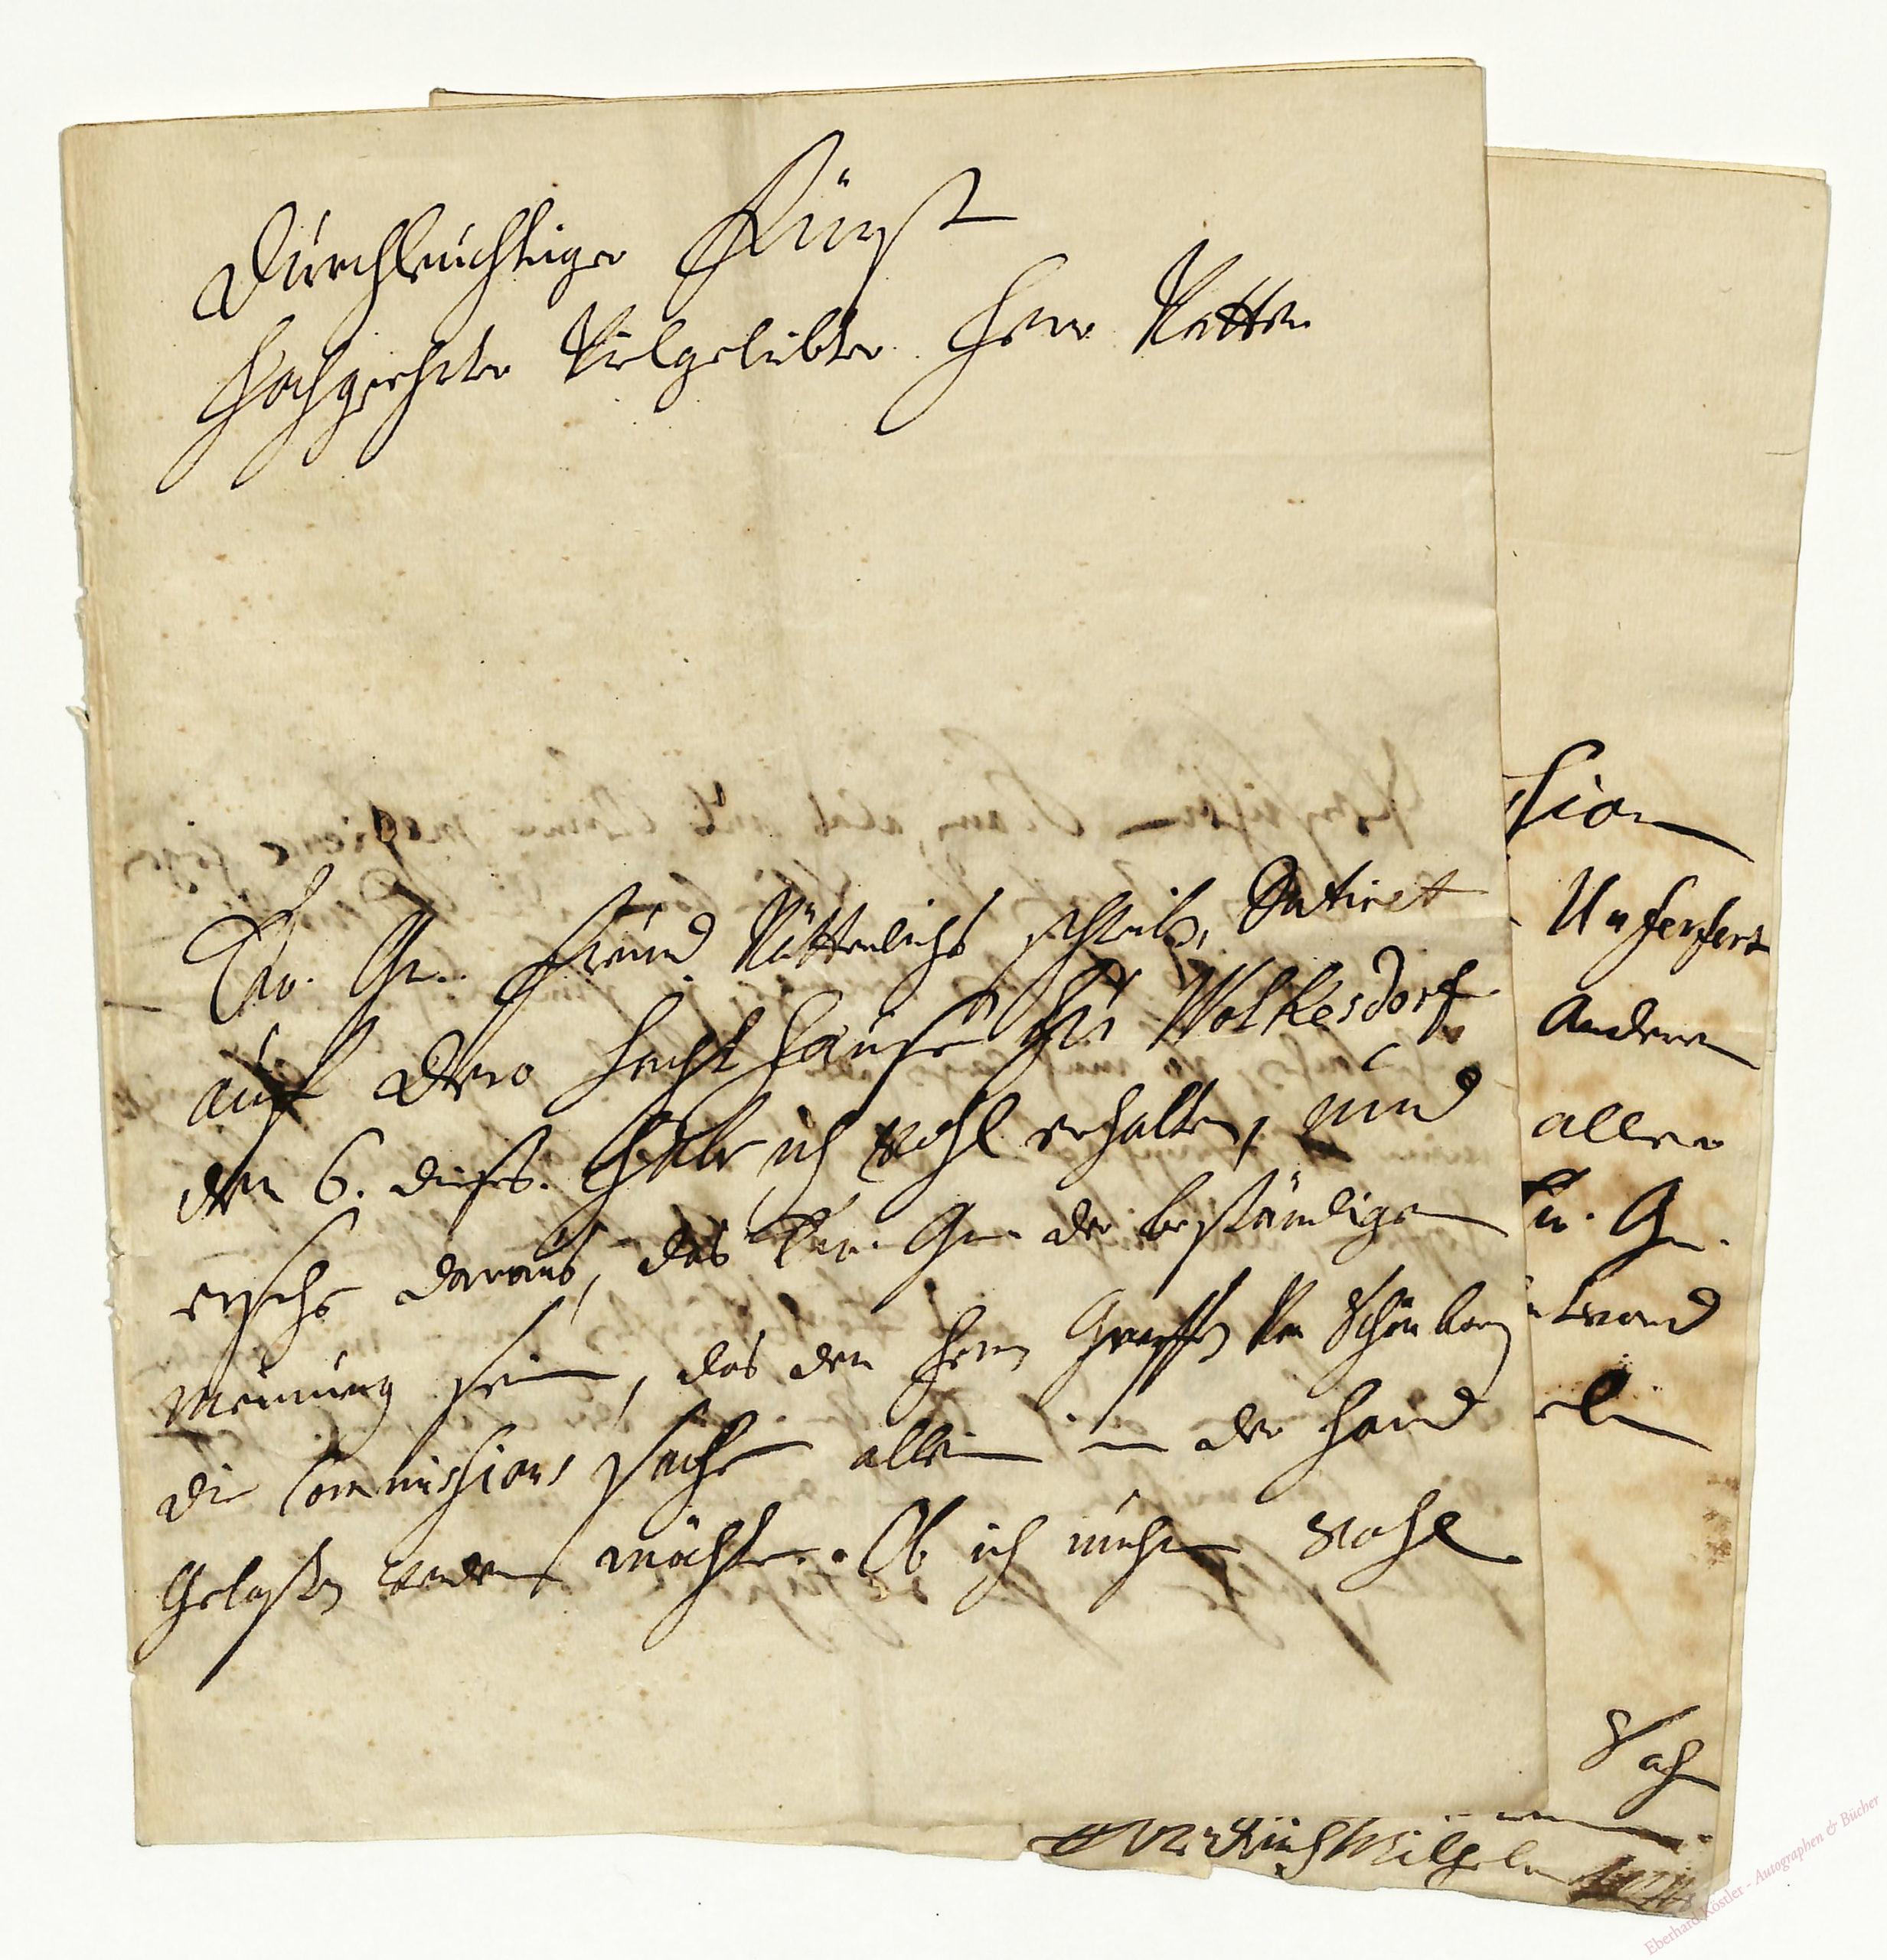 Durchleuchtiger Fürst
Hochgeehrter Vielgelibter Herr Vetter
Ew. Gn. freund Vätterlichs schreib, Datiret
auf dero Jacht hause zu Wolkesdorf
den 6. dieses. Habe ich wohl erhalten, und
ersehe daraus, das Ew. Gn. der beständigen
meinung sein, das den Herrn Graffen von Schönborn
die Commissions sache allein in der hand
Gelassen werden möchte. Ob ich nuhn wohl
ssion
Unferfert
Anderen
aller
Ew. Gn.
Vach
Wilhelm
Eberhard Köstler - Autographen & Bücher